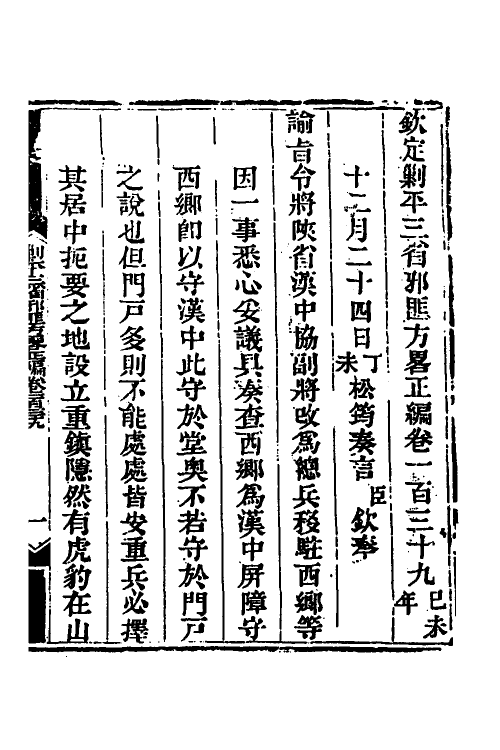 欽定剿平三省邪匪方畧正編卷一百三十九己未年
十二月二十四日丁未松筠奏言臣欽奉
諭旨令將陝省漢中協副將改爲總兵移駐西鄉等
因一事悉心妥議具奏查西鄉爲漢中屏障守
西鄉卽以守漢中此守於堂奧不若守於門戶
之說也但門戶多則不能處處皆安重兵必擇
其居中扼要之地設立重鎮隱然有虎豹在山
剿平三省邪匪方畧正編卷一百三十九
一